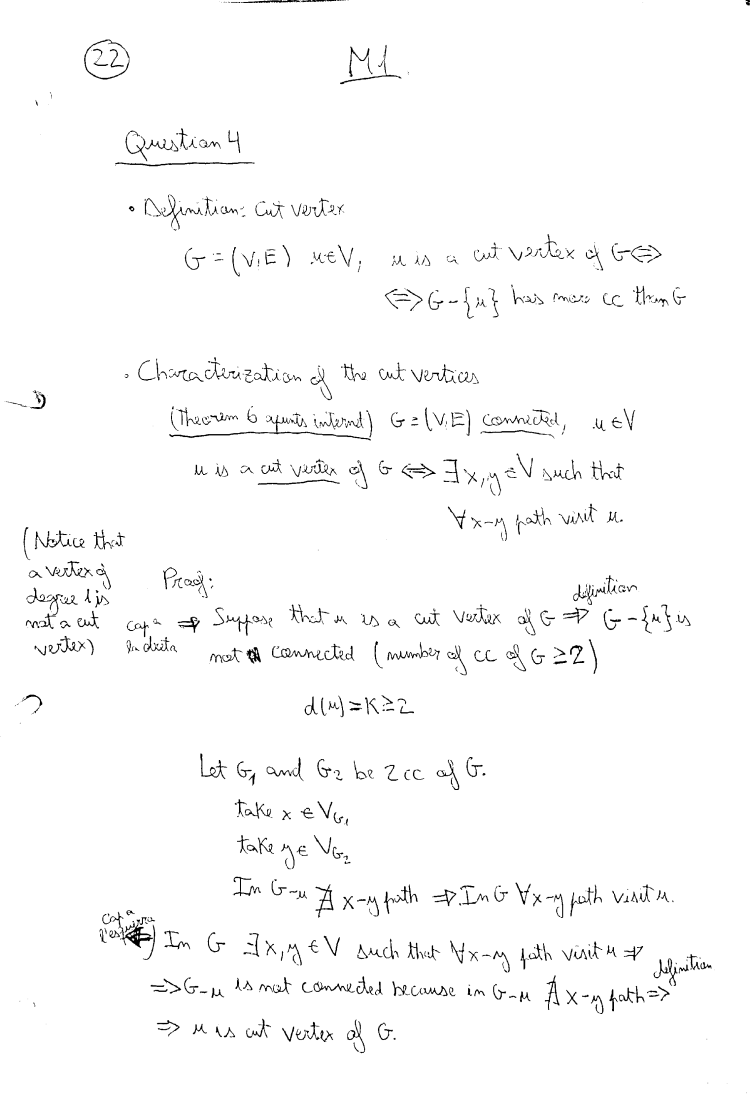 22
M1.
Question 4
• Definition: Cut vertex
G = (V, E) u∈V, u is a cut vertex of G ⟺
⟺ G - {u} has more cc than G
• Characterization of the cut vertices
(Theorem 6 apunts internet) G = (V, E) connected, u ∈ V
u is a cut vertex of G ⟺ ∃ x, y ∈ V such that
∀ x-y path visit u.
(Notice that
a vertex of
degree 1 is
not a cut
vertex)
Proof:
cap a
la dreta
⇒ Suppose that u is a cut vertex of G ⇒ definition G - {u} is
not connected (number of cc of G ≥ 2)
d(u) = K ≥ 2
Let G₁ and G₂ be 2 cc of G.
take x ∈ V_G₁
take y ∈ V_G₂
In G-u ∄ x-y path ⇒ In G ∀ x-y path visit u.
cap a
l'esquerra
⇐) In G ∃ x, y ∈ V such that ∀ x-y path visit u ⇒
⇒ G-u is not connected because in G-u ∄ x-y path ⇒ definition
⇒ u is cut vertex of G.